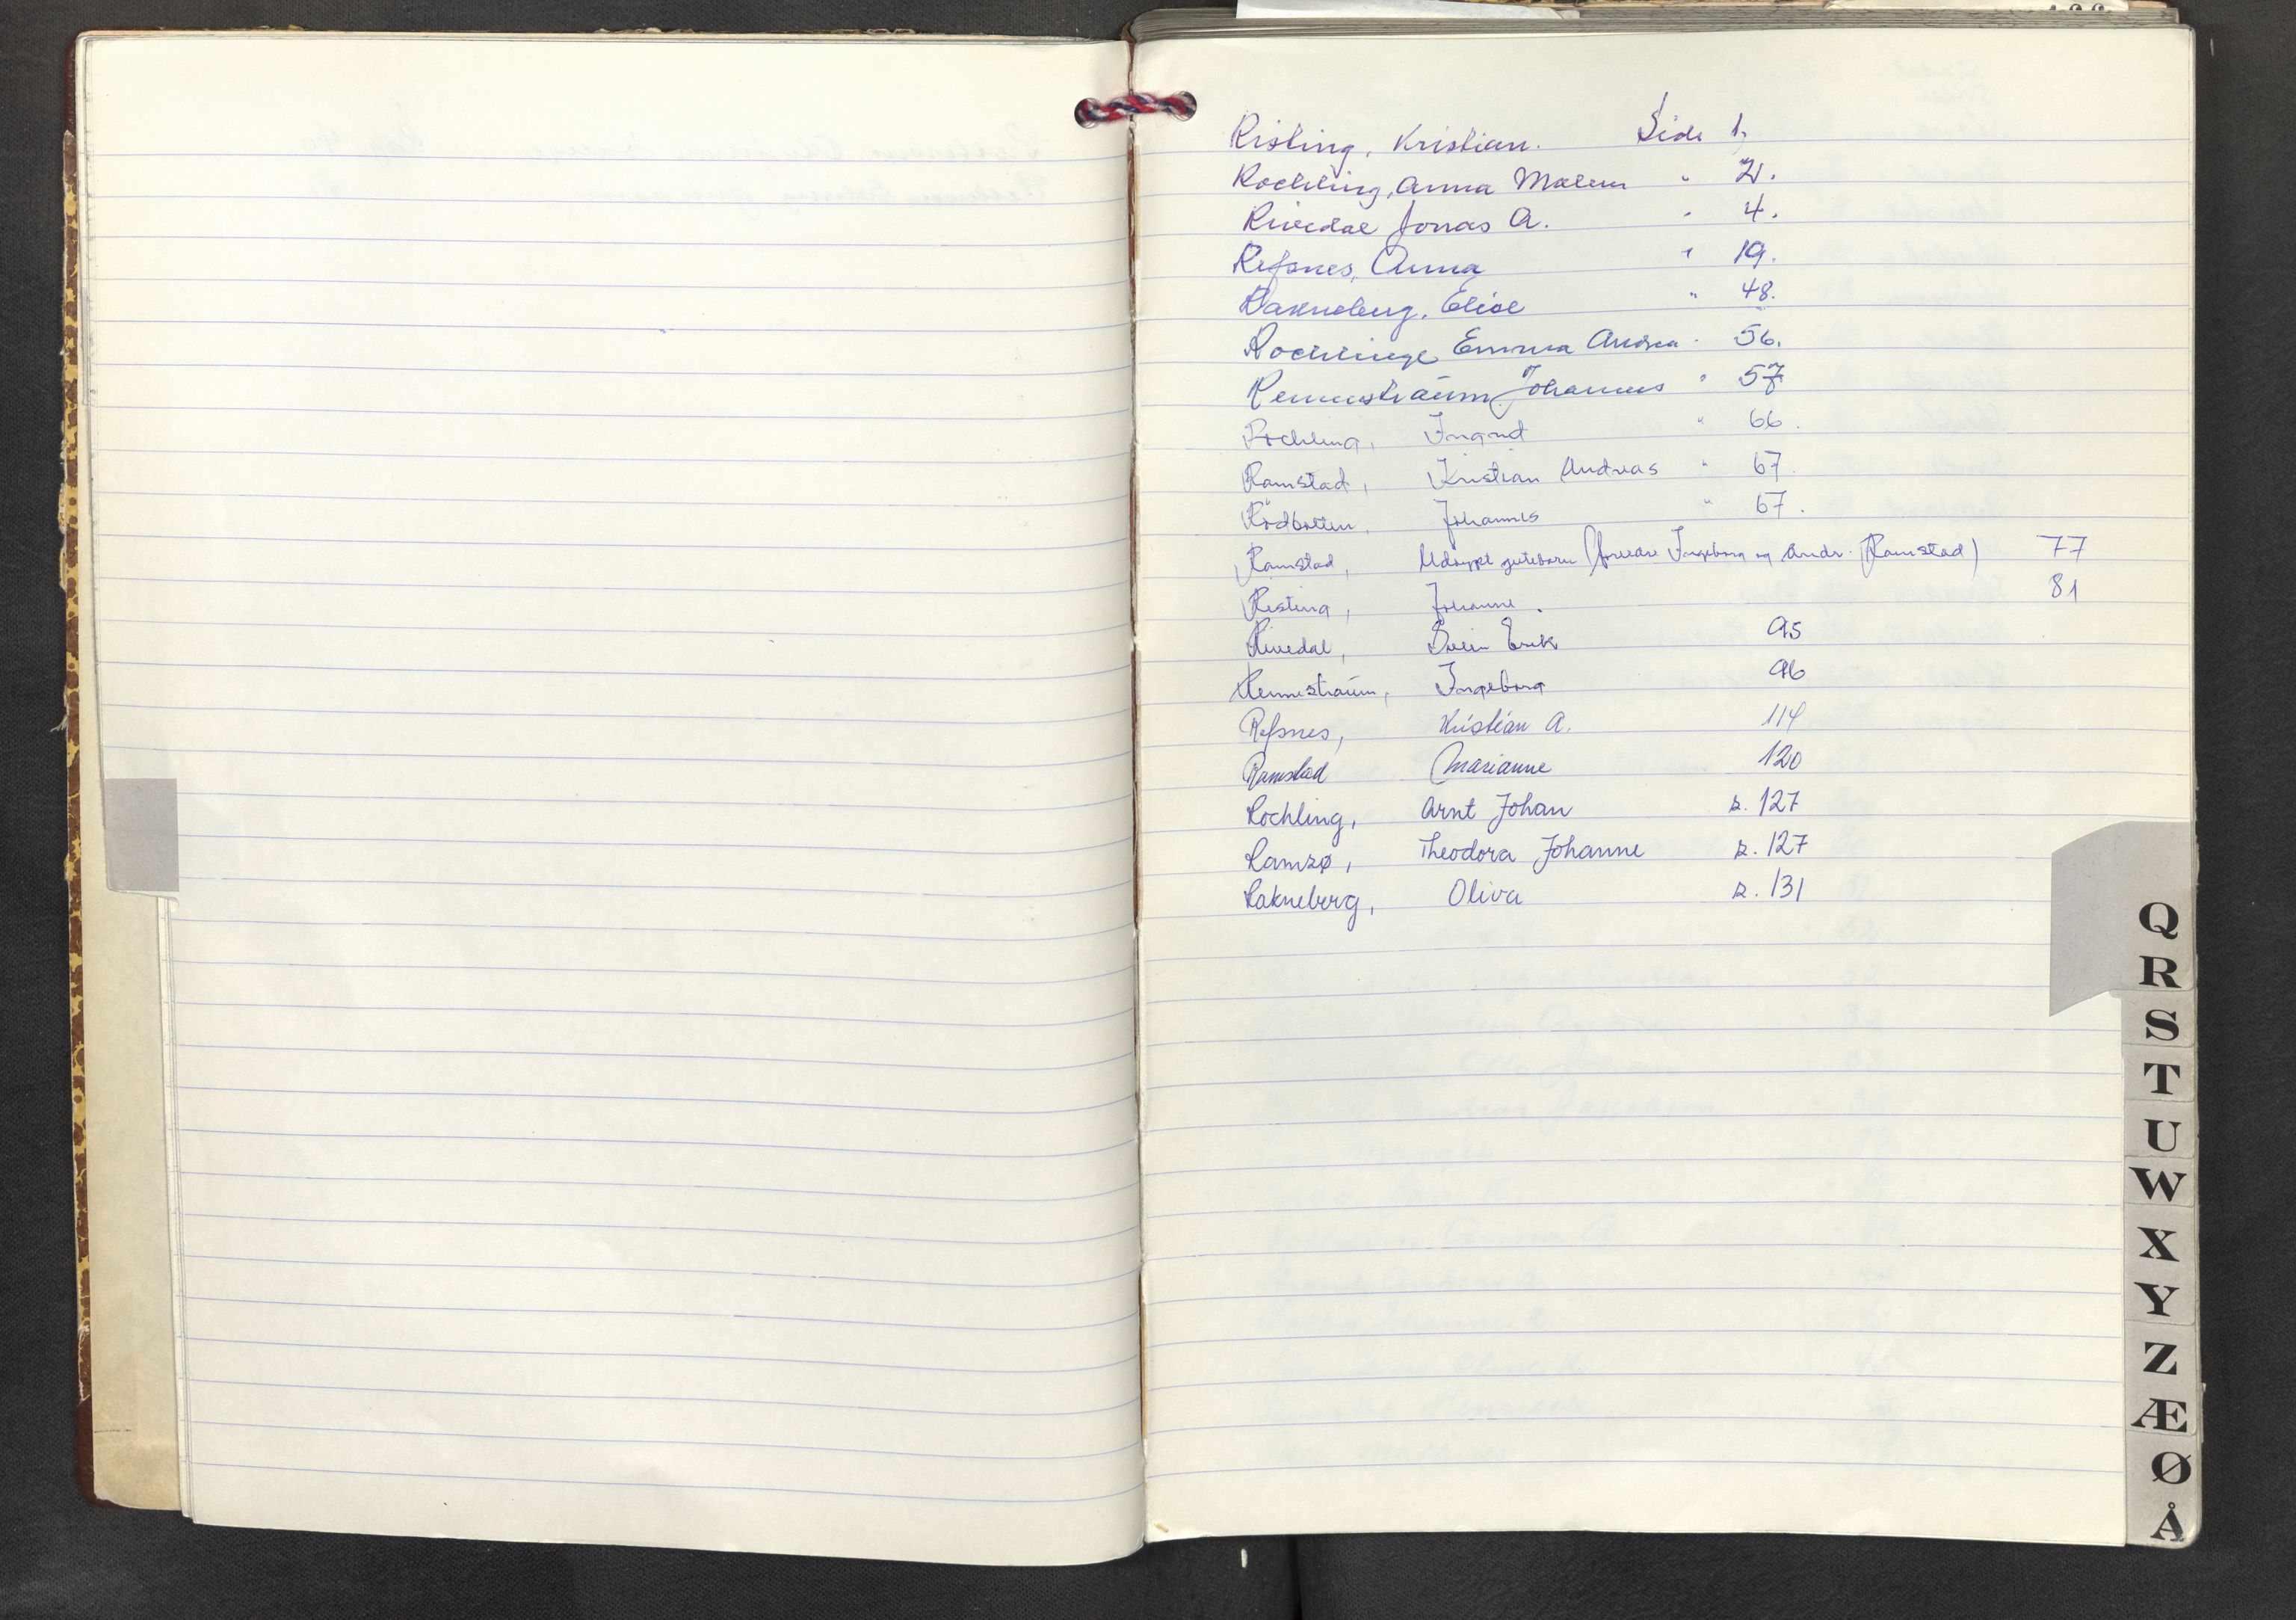 Risting, Kristian. Side 1.
Rochling, Anna Malene " 2.
Rivedal Jonas A. " 4.
Refsnes, Anna " 19.
Rakneberg, Elise " 48.
Rochlinge Emma Andrea " 56.
Rennestraum Johannes " 57
Rochling, Ingrid " 66.
Ramstad, Kristian Andreas " 67.
Rödbotten, Johannes " 67.
Ramstad, Udøypt gutebarn (foreldre Ingeborg og Andr. Ramstad) 77
Risting, Johanne. 81
Rivedal, Svein Erik 95
Rennestraum, Ingeborg 96
Refsnes, Kristian A. 114
Ramstad Marianne 120
Rochling, Arnt Johan s. 127
Ramsø, Theodora Johanne s. 127
Rakneberg, Oliva s. 131
Q
R
S
T
U
W
X
Y
Z
Æ
Ø
Å